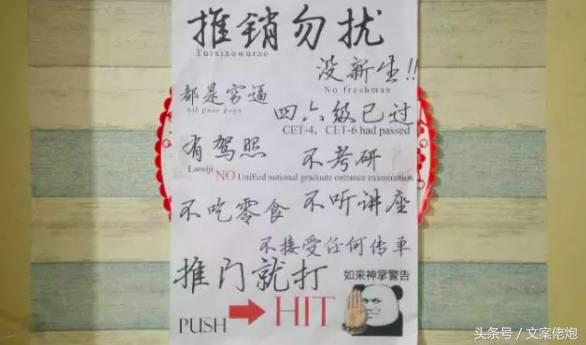 推銷勿扰
Tuixiaowurao
没新生!!
No freshman
都是穷逼
all poor guys
四六级已过
CET-4, CET-6 had passed
有驾照
Laosiji
不考研
NO Unified national graduate entrance examination
不吃零食
不听讲座
不接受任何传单
推门就打
如来神掌警告
PUSH HIT
头条号 / 文案佬炮